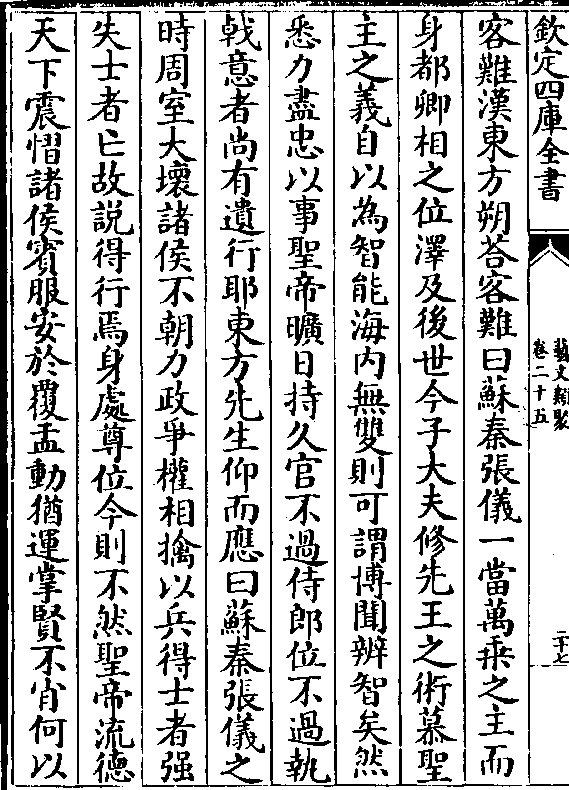 欽定四庫全書
藝文類聚
卷二十五
二十七
客難漢東方朔荅客難曰蘇秦張儀一當萬乗之主而
身都卿相之位澤及後世今子大夫修先王之術慕聖
主之義自以為智能海内無雙則可謂博聞辨智矣然
悉力盡忠以事聖帝曠日持久官不過侍郎位不過執
戟意者尚有遺行耶東方先生仰而應曰蘇秦張儀之
時周室大壞諸侯不朝力政爭權相擒以兵得士者强
失士者亡故説得行焉身處尊位今則不然聖帝流德
天下震慴諸侯賓服安於覆盂動猶運掌賢不肖何以